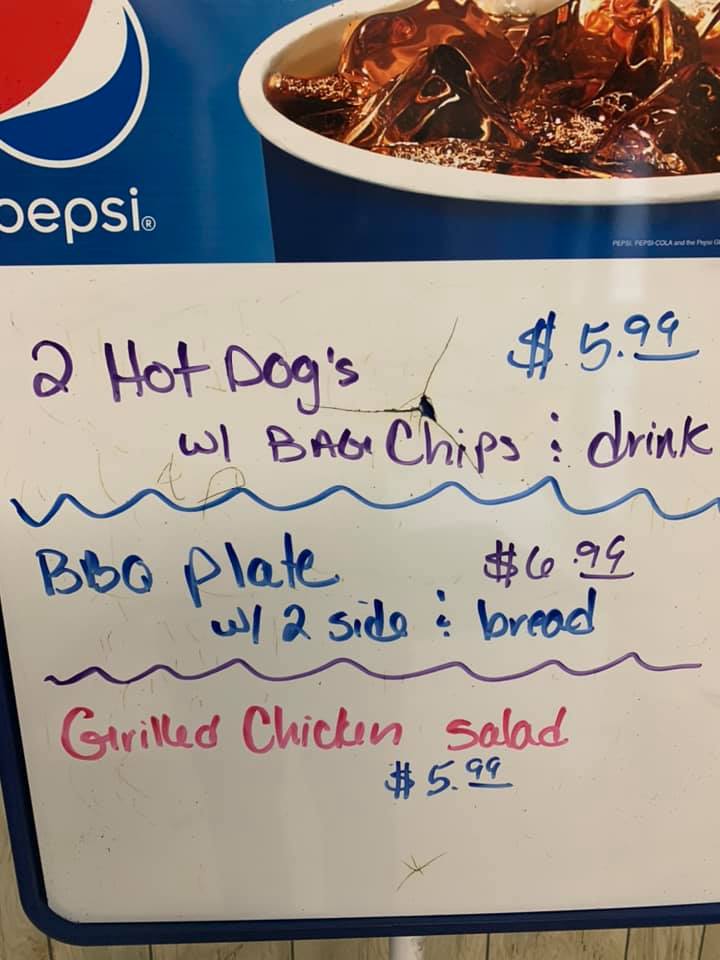 pepsi®
PEPSI, PEPSI-COLA and the Pepsi
2 Hot Dog's $5.99
w/ BAG Chips & drink
BBQ plate $6.99
w/ 2 side & bread
Grilled Chicken salad
$5.99